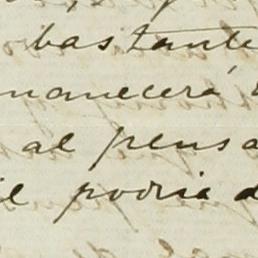 bastante
manecerá
al pensa
podria d